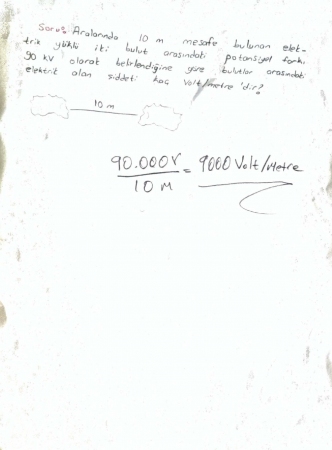 Soru: Aralarında 10 m mesafe bulunan elek-
trik yüklü iki bulut arasındaki potansiyel farkı
90 kV olarak belirlendiğine göre bulutlar arasındaki
elektrik alan şiddeti kaç Volt/metre 'dir?
10 m
90.000V = 9000 Volt/Metre
10 M